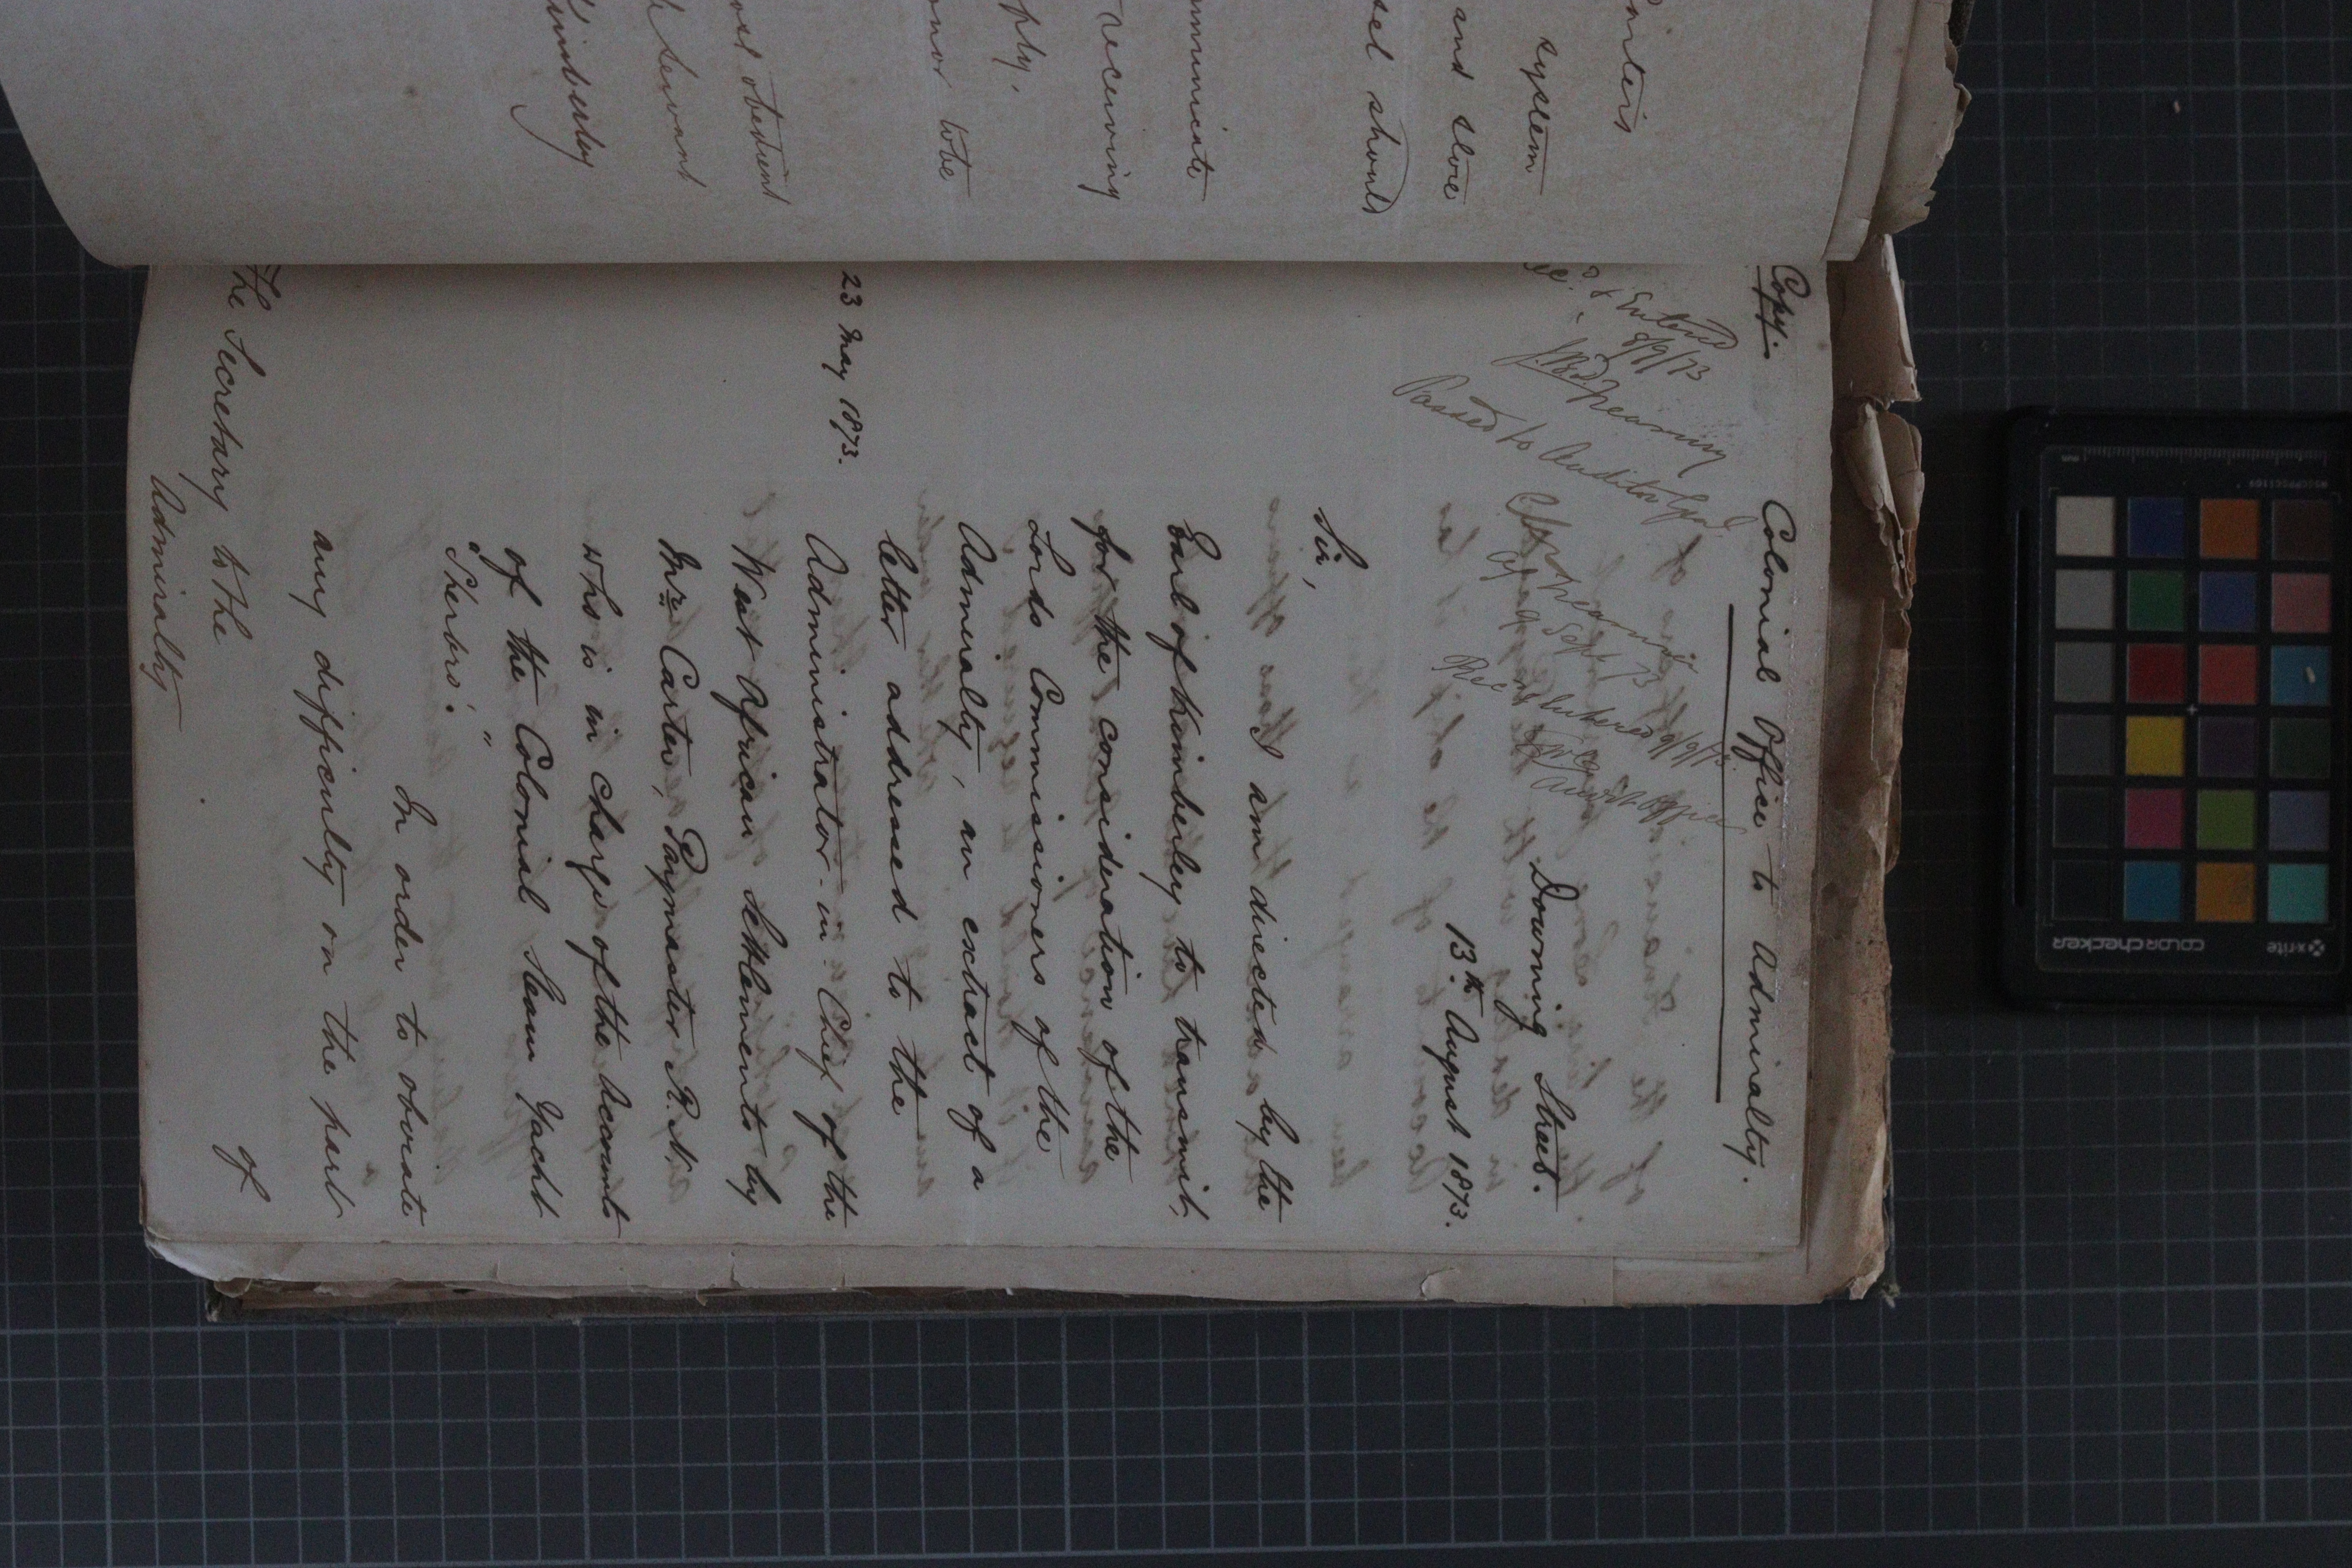 system
and store
sel should
mmunicate
receiving
pply,
onor to be
ost obedient
servant
Kimberley
Copy.
Colonial Office to Admiralty.
& Entered
8/9/73
Passed to Auditor Genl
9 Sept 73
Rec Entered 9/9/73
Audit Office
Downing Street.
13th August 1873.
Sir,
I am directed by the
Earl of Kimberley to transmit,
for the consideration of the
Lords Commissioners of the
Admiralty, an extract of a
letter addressed to the
23 May 1873.
Administrator-in-Chief of the
West African Settlements by
Mr. Carter, Paymaster R.N.
who is in charge of the Accounts
of the Colonial Steam Yacht
"Sherbro'."
In order to obviate
any difficulty on the part
of
The Secretary to the
Admiralty